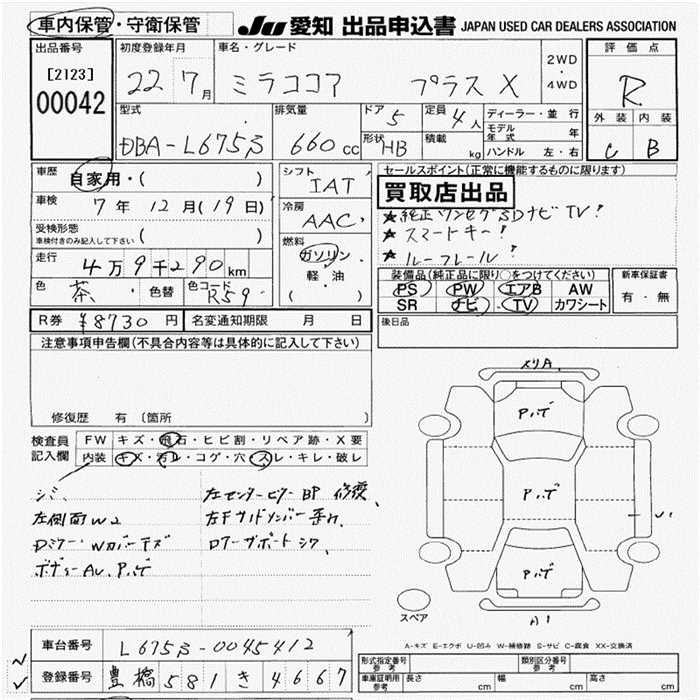 車内保管・守衛保管
JU 愛知 出品申込書 JAPAN USED CAR DEALERS ASSOCIATION
出品番号
[2123]
00042
初度登録年月
22 7月
車名・グレード
ミラココア プラス X
2WD
・
4WD
評価点
R
外装 内装
C B
型式
DBA-L675S
排気量
660 cc
ドア 5
形状 HB
定員 4人
積載 kg
ディーラー・並行
モデル年式 年
ハンドル 左・右
車歴 自家用・( )
車検 7年 12月(19日)
受検形態
車検付きのみ記入して下さい ( )
走行 4万9千290km
色 茶 色替 色コード R59
シフト IAT
冷房 AAC
燃料
ガソリン
・
軽・油
( )
セールスポイント(正常に機能するものに限ります)
買取店出品
★純正ワンセグSDナビTV!
★スマートキー!
★ルーフレール!
装備品(純正品に限り○をつけてください)
PS PW エアB AW
SR ナビ TV カワシート
新車保証書
有・無
後日品
R券 ¥8730円 名変通知期限 月 日
注意事項申告欄(不具合内容等は具体的に記入して下さい)
修復歴 有(箇所
検査員記入欄
FW キズ・飛石・ヒビ割・リペア跡・X要
内装 キズ・汚レ・コゲ・穴・スレ・キレ・破レ
シミ
左側面W2
Dミラー・Wカバーキズ
左センターピラーBP 修復
スペア
A-キズ E-エクボ U-凹み W-補修跡 S-サビ C-腐食 XX-交換済
車台番号 L675S-0045412
登録番号 豊橋 581 き 4667
形式指定番号
参考
類別区分番号
参考
車庫証明用
参考
長さ cm 幅 cm 高さ cm